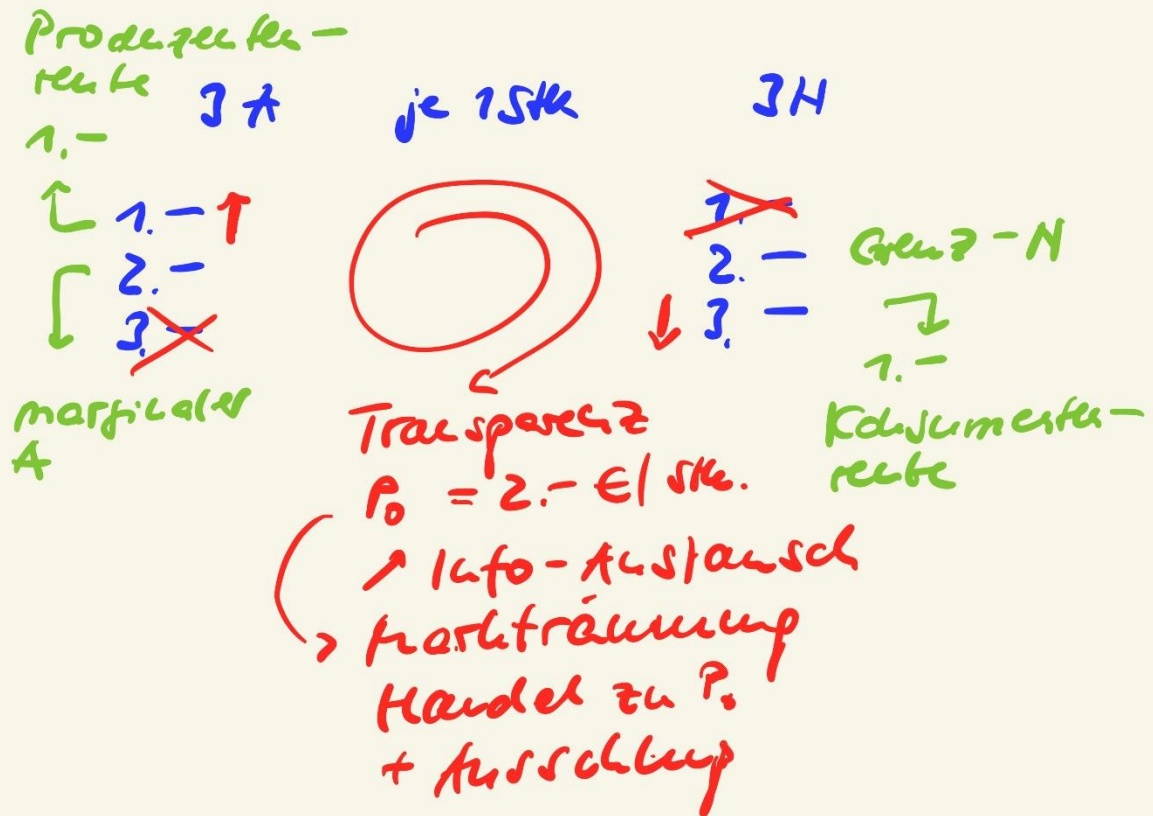 Produzenten-
rente
3 A
je 1 Stk
3 N
1.-
1.-
2.-
3.-
1.-
2.-
3.-
Grenz-N
1.-
Konsumenten-
rente
marginaler
A
Transparenz
P₀ = 2.- €/Stk.
Info-Austausch
Markträumung
Handel zu P₀
+ Ausschluß